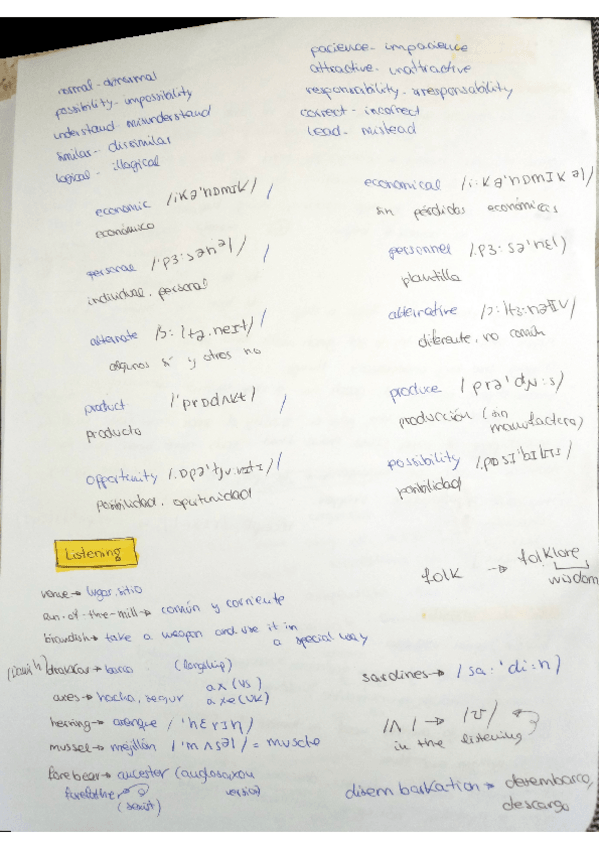 normal - abnormal
possibility - impossibility
understand - misunderstand
similar - dissimilar
logical - illogical
pacience - impacience
attractive - unattractive
responsability - irresponsability
correct - incorrect
lead - mislead
economic /iKə'nDmIK/ /
económico
economical /i:Kə'nDmIKəl/
sin pérdidas económicas
personal /'p3:sənəl/ /
individual, personal
personnel /.p3:sə'nɛl/
plantilla
alternate /
algunos sí y otros no
alternative
diferente, no común
product /'prDdʌkt/ /
producto
produce /prə'djʊ:s/
producción (sin
manufactura)
opportunity /
posibilidad, oportunidad
possibility
posibilidad
Listening
venue → lugar, sitio
Run-of-the-mill → común y corriente
brandish → take a weapon and use it in
a special way
drakkar → barco (longship)
axes → hacha, segur
ax (US)
axe (UK)
herring → arenque /'hɛrɪŋ/
mussel → mejillón /'mʌsəl/ = muscle
forebear → ancester (anglosaxon
version)
(sexist)
folk → folklore
wisdom
sardines → /sa:'di:n/
/ʌ/ → /ʊ/
in the listening
disembarkation → desembarco,
descargo